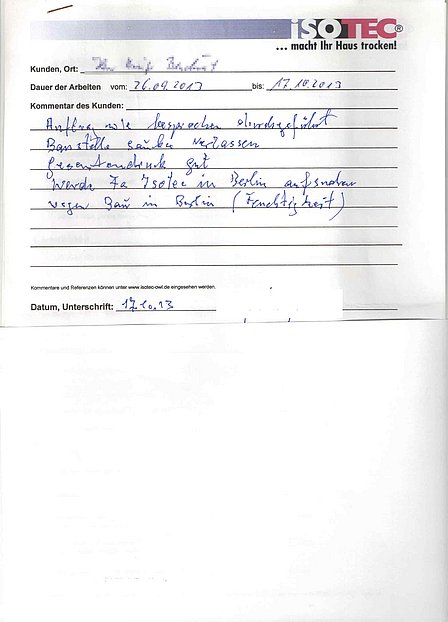 ISOTEC®
... macht Ihr Haus trocken!
Kunden, Ort:
Dauer der Arbeiten vom: 26.09.2013 bis: 17.10.2013
Kommentar des Kunden:
Auftrag wie besprochen durchgeführt
Baustelle sauber verlassen
Gesamteindruck gut
Werde Fa Isotec in Berlin aufsuchen
wegen Bau in Berlin (Feuchtigkeit)
Kommentare und Referenzen können unter www.isotec-owl.de eingesehen werden.
Datum, Unterschrift: 17.10.13